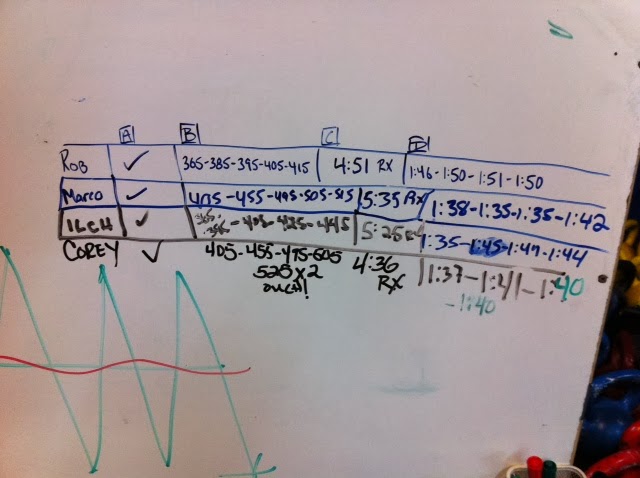 A B C FD
ROB 365-385-395-405-415 4:51 RX 1:46-1:50-1:51-1:50
Marco 415-455-495-505-515 5:35 RX 1:38-1:35-1:35-1:42
ILCH -405-425-445 5:25 1:35-1:45-1:47-1:44
COREY 405-455-475-505 4:36 1:37-1:41-1:40
525x2 RX -1:40
OUCH!